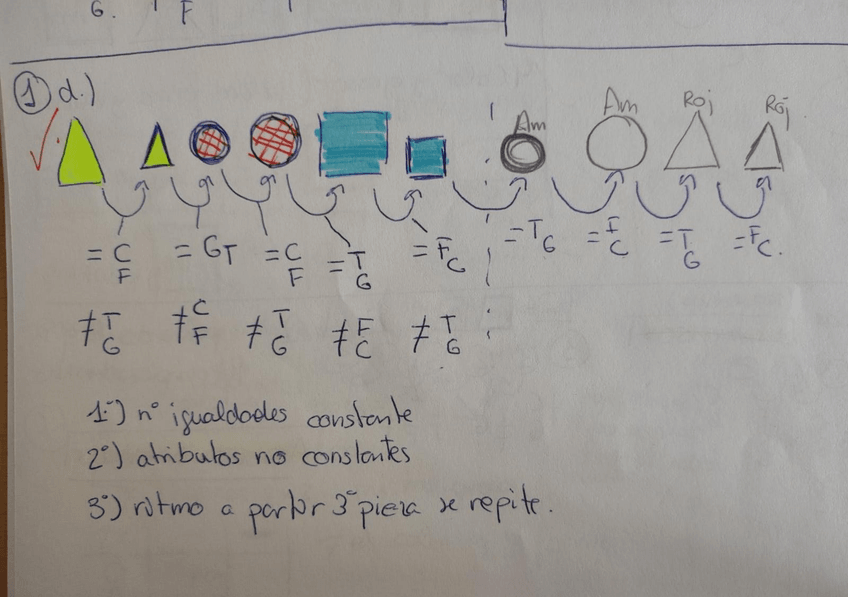 G. T F
1 d.)
Am Am Roj Roj
= C F = G T = C F = T G = F C = T G = F C = T G = F C.
≠ T G ≠ C F ≠ T G ≠ F C ≠ T G
1º) nº igualdades constante
2º) atributos no constantes
3º) ritmo a partir 3ª pieza se repite.